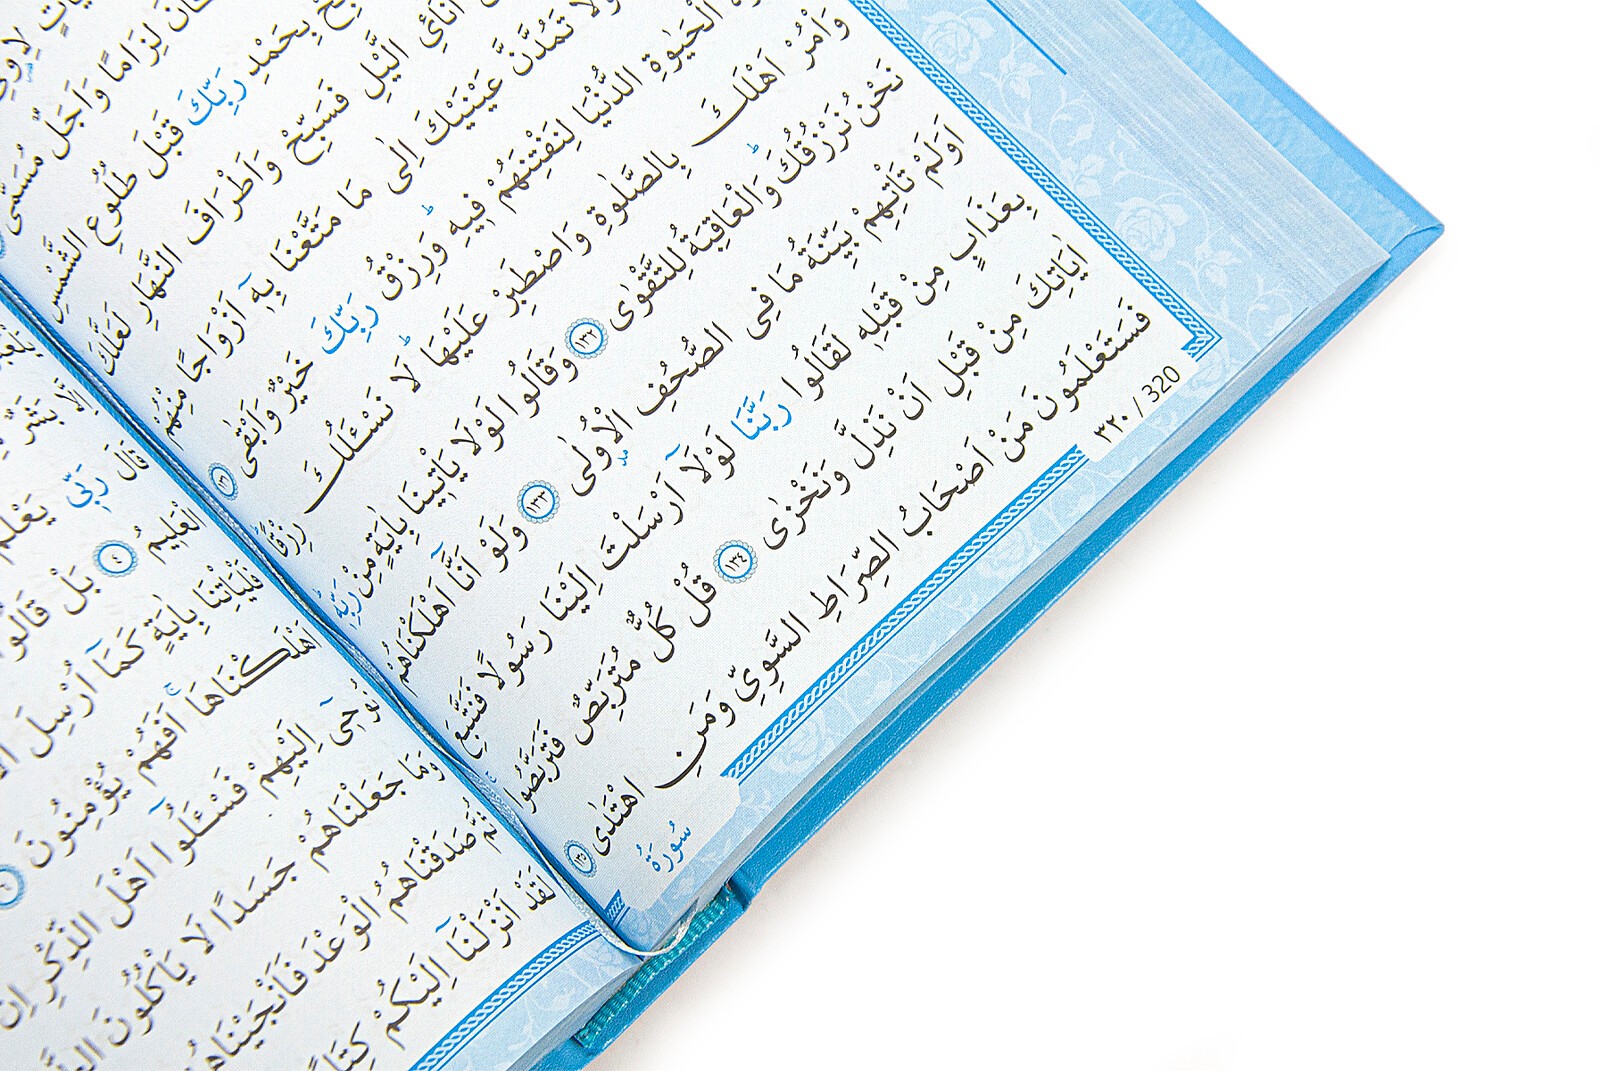 لِزَامًا وَاَجَلٌ مُسَمًّى
بِحَمْدِ رَبِّكَ قَبْلَ طُلُوعِ الشَّمْسِ
اٰنَٓائِ الَّيْلِ فَسَبِّحْ وَاَطْرَافَ النَّهَارِ لَعَلَّكَ
وَلَا تَمُدَّنَّ عَيْنَيْكَ اِلٰى مَا مَتَّعْنَا بِهٖٓ اَزْوَاجًا مِنْهُمْ
الْحَيٰوةِ الدُّنْيَا لِنَفْتِنَهُمْ فِيهِ وَرِزْقُ رَبِّكَ خَيْرٌ وَاَبْقٰى ١٣١
وَأْمُرْ اَهْلَكَ بِالصَّلٰوةِ وَاصْطَبِرْ عَلَيْهَا لَا نَسْـَٔلُكَ رِزْقًا
نَحْنُ نَرْزُقُكَ وَالْعَاقِبَةُ لِلتَّقْوٰى ١٣٢ وَقَالُوا لَوْلَا يَأْتِينَا بِاٰيَةٍ مِنْ رَبِّهِ
اَوَلَمْ تَأْتِهِمْ بَيِّنَةُ مَا فِى الصُّحُفِ الْاُولٰى ١٣٣ وَلَوْ اَنَّٓا اَهْلَكْنَاهُمْ
بِعَذَابٍ مِنْ قَبْلِهِ لَقَالُوا رَبَّنَا لَوْلَٓا اَرْسَلْتَ اِلَيْنَا رَسُولًا فَنَتَّبِعَ
اٰيَاتِكَ مِنْ قَبْلِ اَنْ نَذِلَّ وَنَخْزٰى ١٣٤ قُلْ كُلٌّ مُتَرَبِّصٌ فَتَرَبَّصُوا
فَسَتَعْلَمُونَ مَنْ اَصْحَابُ الصِّرَاطِ السَّوِىِّ وَمَنِ اهْتَدٰى ١٣٥
٣٢٠ / 320
سُورَةُ
اِلَّا بَشَرٌ
قَالَ رَبِّى يَعْلَمُ
الْعَلِيمُ ٤ بَلْ قَالُوا
فَلْيَأْتِنَا بِاٰيَةٍ كَمَٓا اُرْسِلَ
اَهْلَكْنَاهَا اَفَهُمْ يُؤْمِنُونَ ٦
نُوحِىٓ اِلَيْهِمْ فَسْـَٔلُٓوا اَهْلَ الذِّكْرِ اِنْ
وَمَا جَعَلْنَاهُمْ جَسَدًا لَا يَأْكُلُونَ
ثُمَّ صَدَقْنَاهُمُ الْوَعْدَ فَاَنْجَيْنَاهُمْ
لَقَدْ اَنْزَلْنَٓا اِلَيْكُمْ كِتَابًا